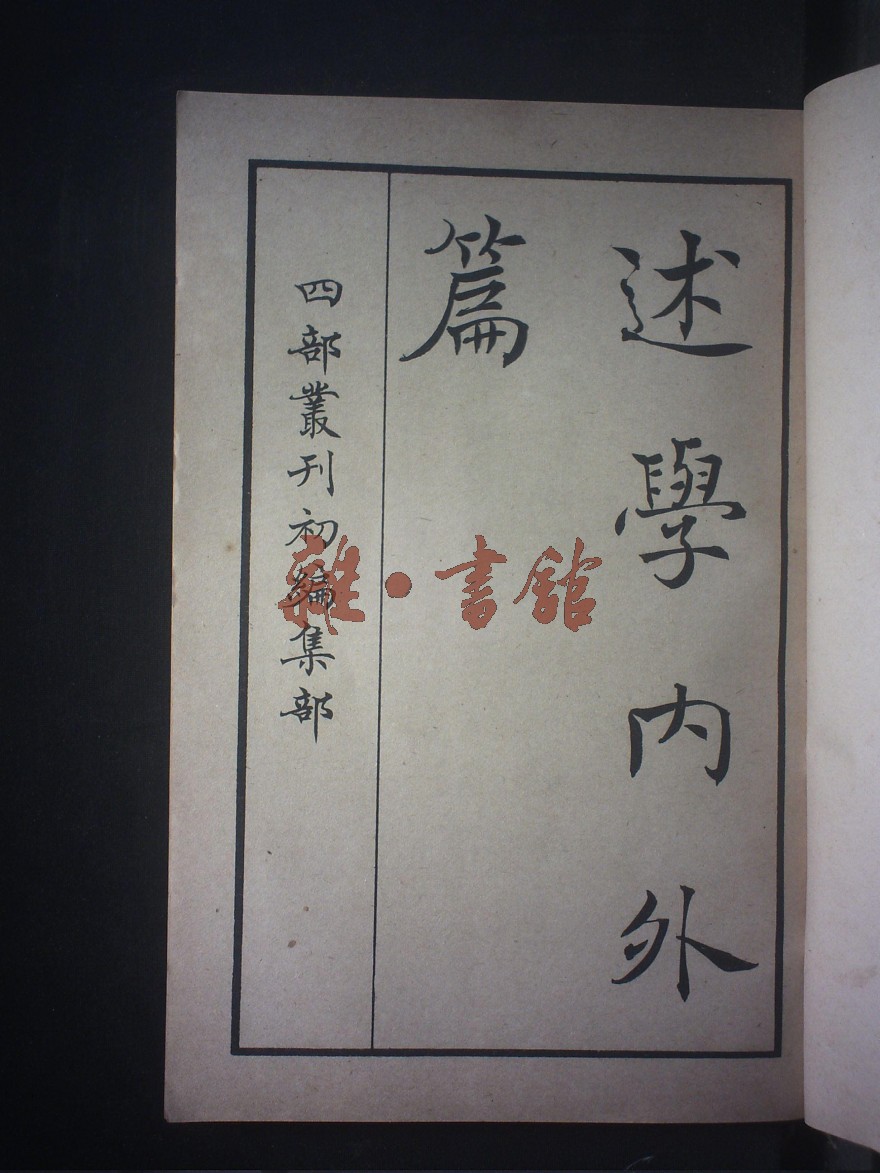 述學內外
篇
四部叢刊初編集部
雜·書館